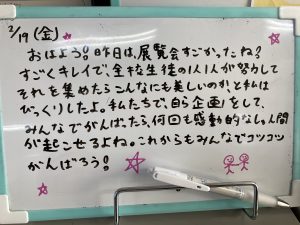 2/19(金)
おはよう!昨日は、展覧会すごかったね?
すごくキレイで、全校生徒の1人1人が努力して
それを集めたらこんなにも美しいのか、と私は
びっくりしたよ。私たちで、自ら企画をして、
みんなでがんばったら、何回も感動的なし。人間
が起こせるよね。これからもみんなでコツコツ
がんばろう!